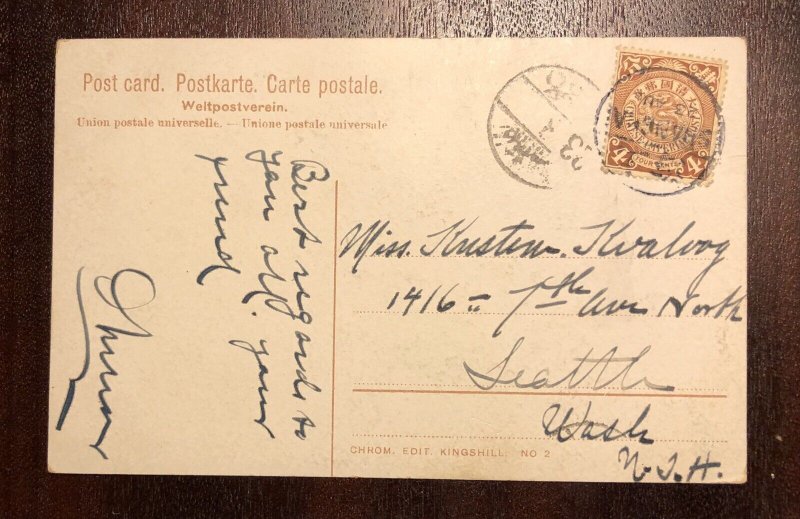 Post card. Postkarte. Carte postale.
Weltpostverein.
Union postale universelle. — Unione postale universale
Best regards to
you all. your
friend
Miss. Kristen. Kvalvog
1416 = 7th Ave North
Seattle
Wash
N.S.A.
CHROM. EDIT. KINGSHILL. NO 2
大清國郵政
FOUR CENTS
4
4
23